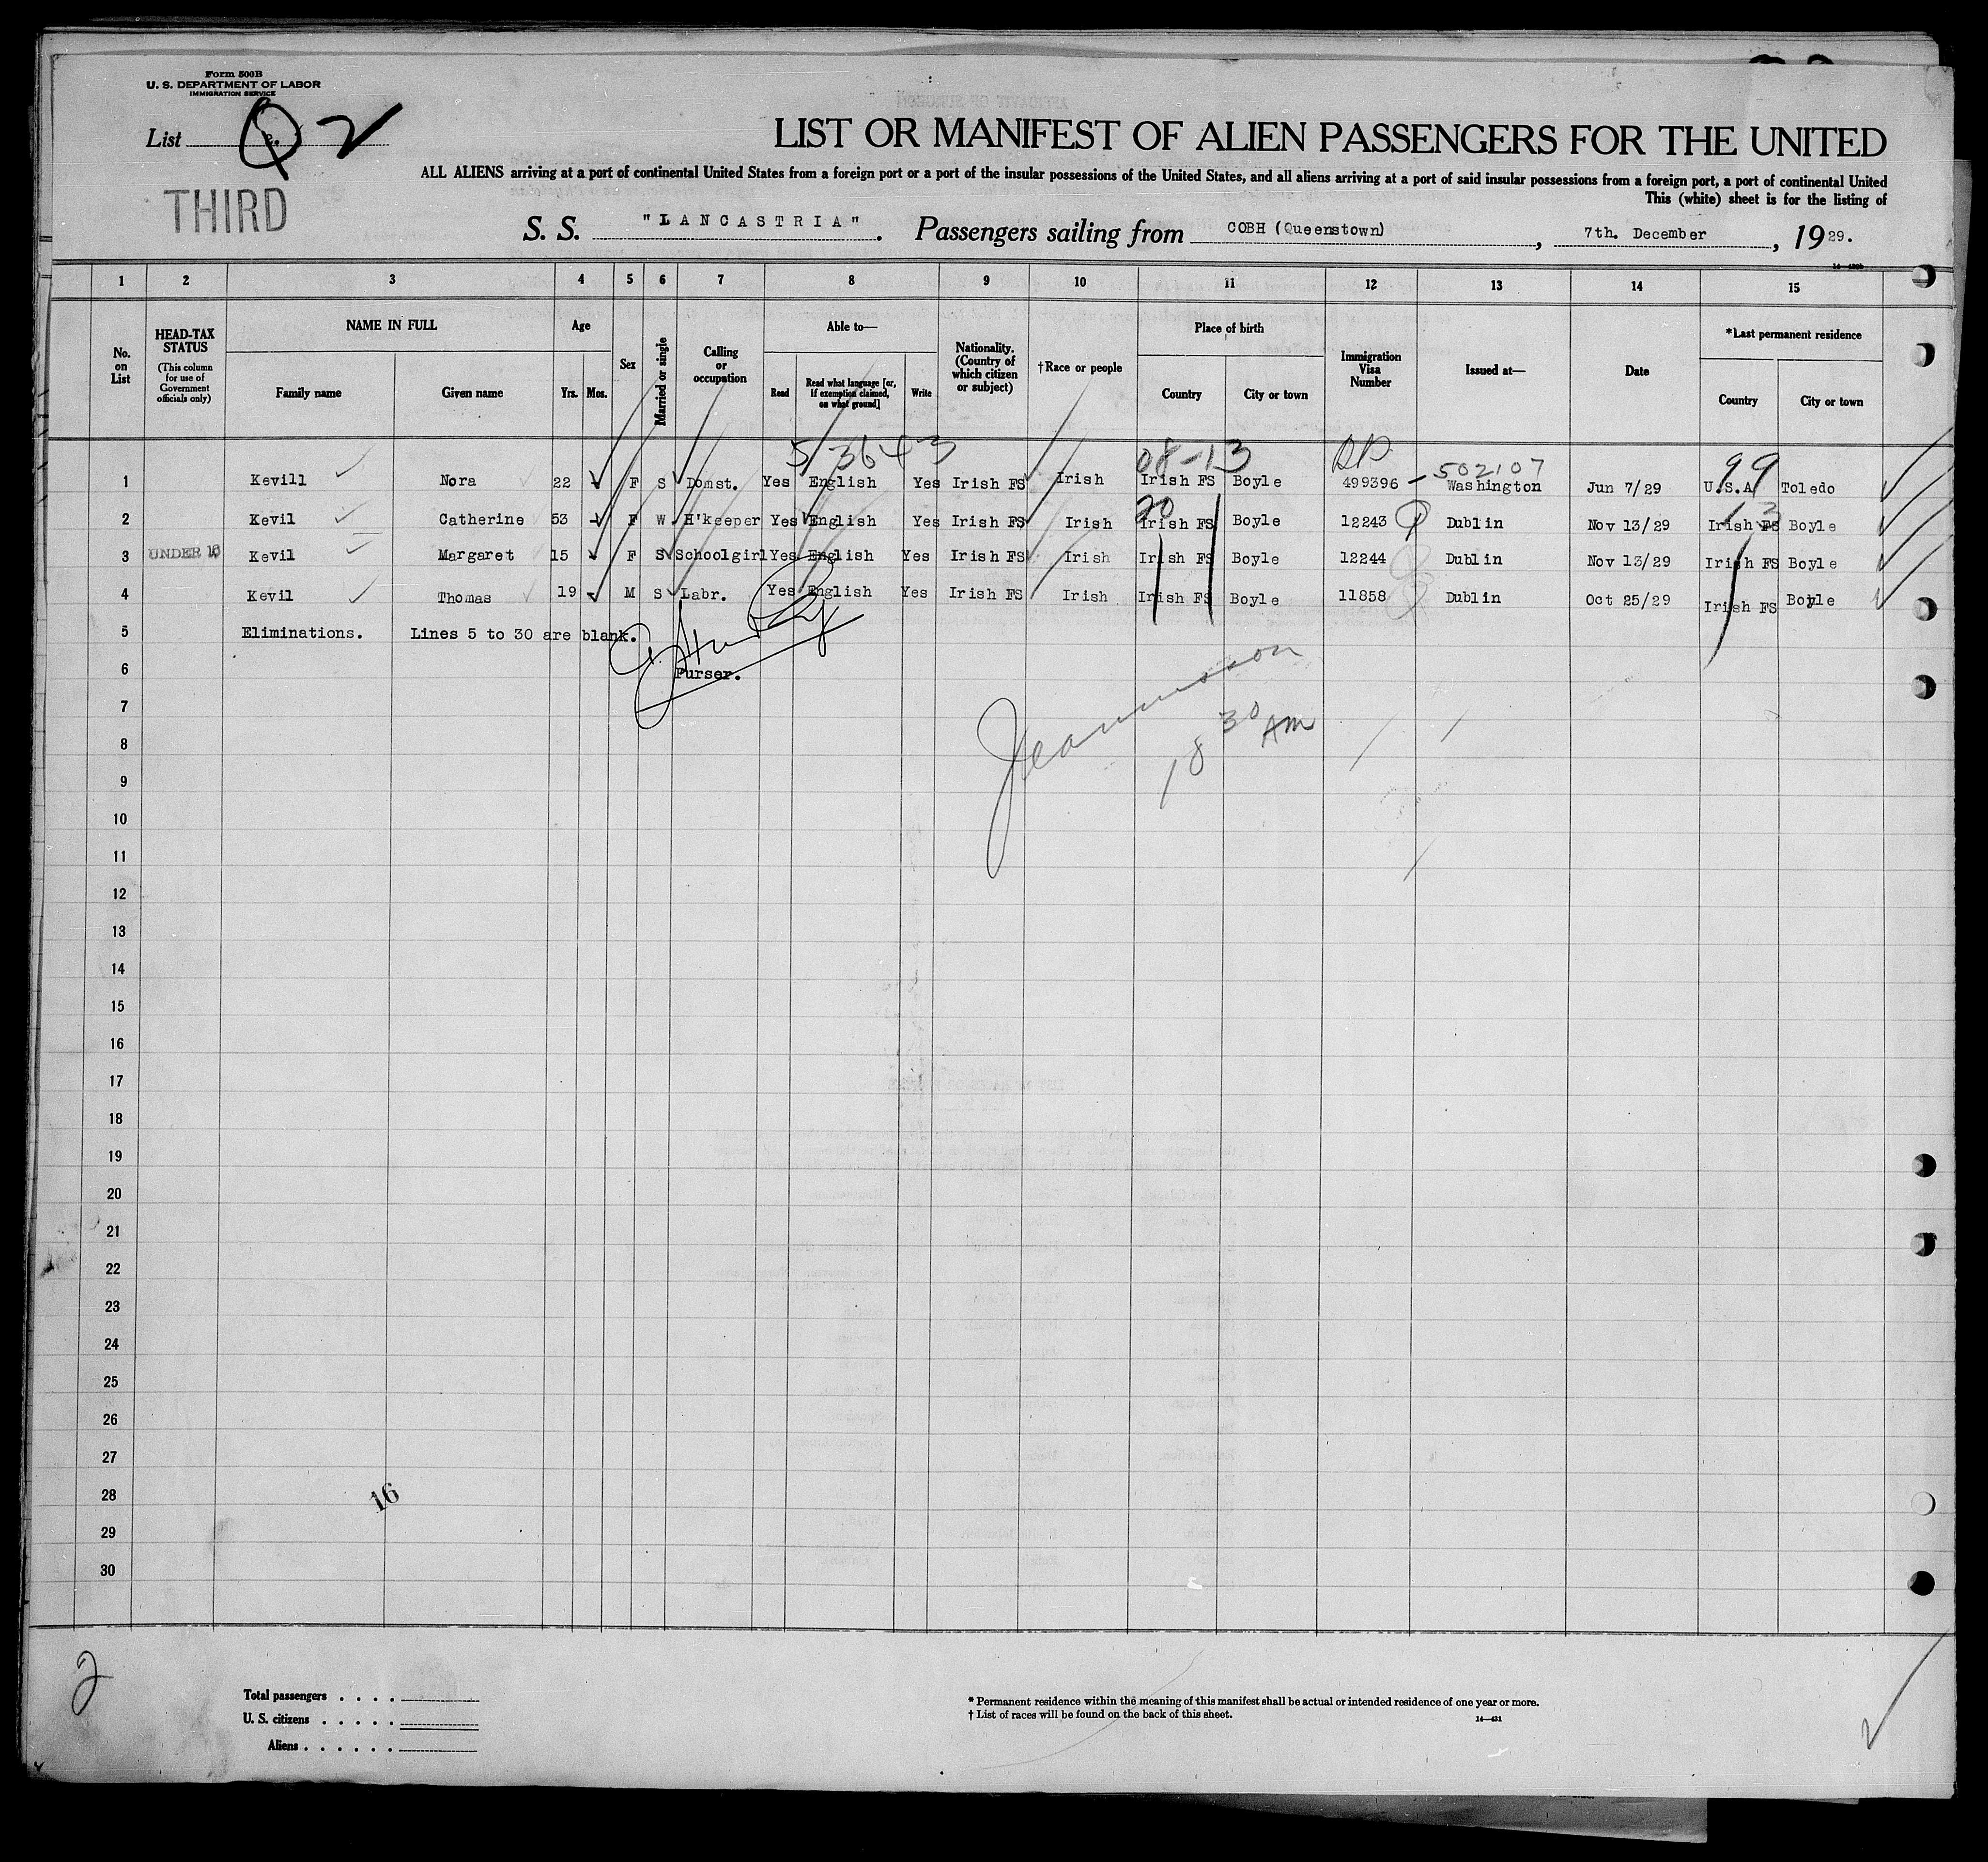 Form 500B
U. S. DEPARTMENT OF LABOR
IMMIGRATION SERVICE
List 2
THIRD
LIST OR MANIFEST OF ALIEN PASSENGERS FOR THE UNITED
ALL ALIENS arriving at a port of continental United States from a foreign port or a port of the insular possessions of the United States, and all aliens arriving at a port of said insular possessions from a foreign port, a port of continental United
This (white) sheet is for the listing of
S. S. "LANCASTRIA". Passengers sailing from COBH (Queenstown), 7th. December, 1929.
1 2 3 4 5 6 7 8 9 10 11 12 13 14 15
No. on List
HEAD-TAX STATUS (This column for use of Government officials only)
NAME IN FULL
Family name Given name
Age
Yrs. Mos.
Sex
Married or single
Calling or occupation
Able to—
Read Read what language [or, if exemption claimed, on what ground] Write
Nationality. (Country of which citizen or subject)
†Race or people
Place of birth
Country City or town
Immigration Visa Number
Issued at—
Date
*Last permanent residence
Country City or town
5 3643 08-13 502107 99
1 Kevill Nora 22 F S Domst. Yes English Yes Irish FS Irish Irish FS Boyle 499396 Washington Jun 7/29 U.S.A Toledo
20 13
2 Kevil Catherine 53 F W H'keeper Yes English Yes Irish FS Irish Irish FS Boyle 12243 Dublin Nov 13/29 Irish FS Boyle
3 UNDER 16 Kevil Margaret 15 F S Schoolgirl Yes English Yes Irish FS Irish Irish FS Boyle 12244 Dublin Nov 13/29 Irish FS Boyle
4 Kevil Thomas 19 M S Labr. Yes English Yes Irish FS Irish Irish FS Boyle 11858 Dublin Oct 25/29 Irish FS Boyle
5 Eliminations. Lines 5 to 30 are blank.
6 Purser.
7
8 30 AM
9
10
11
12
13
14
15
16
17
18
19
20
21
22
23
24
25
26
27
28 16
29
30
2
Total passengers . . . .
U. S. citizens . . . . .
Aliens . . . . . .
* Permanent residence within the meaning of this manifest shall be actual or intended residence of one year or more.
† List of races will be found on the back of this sheet.
14—431